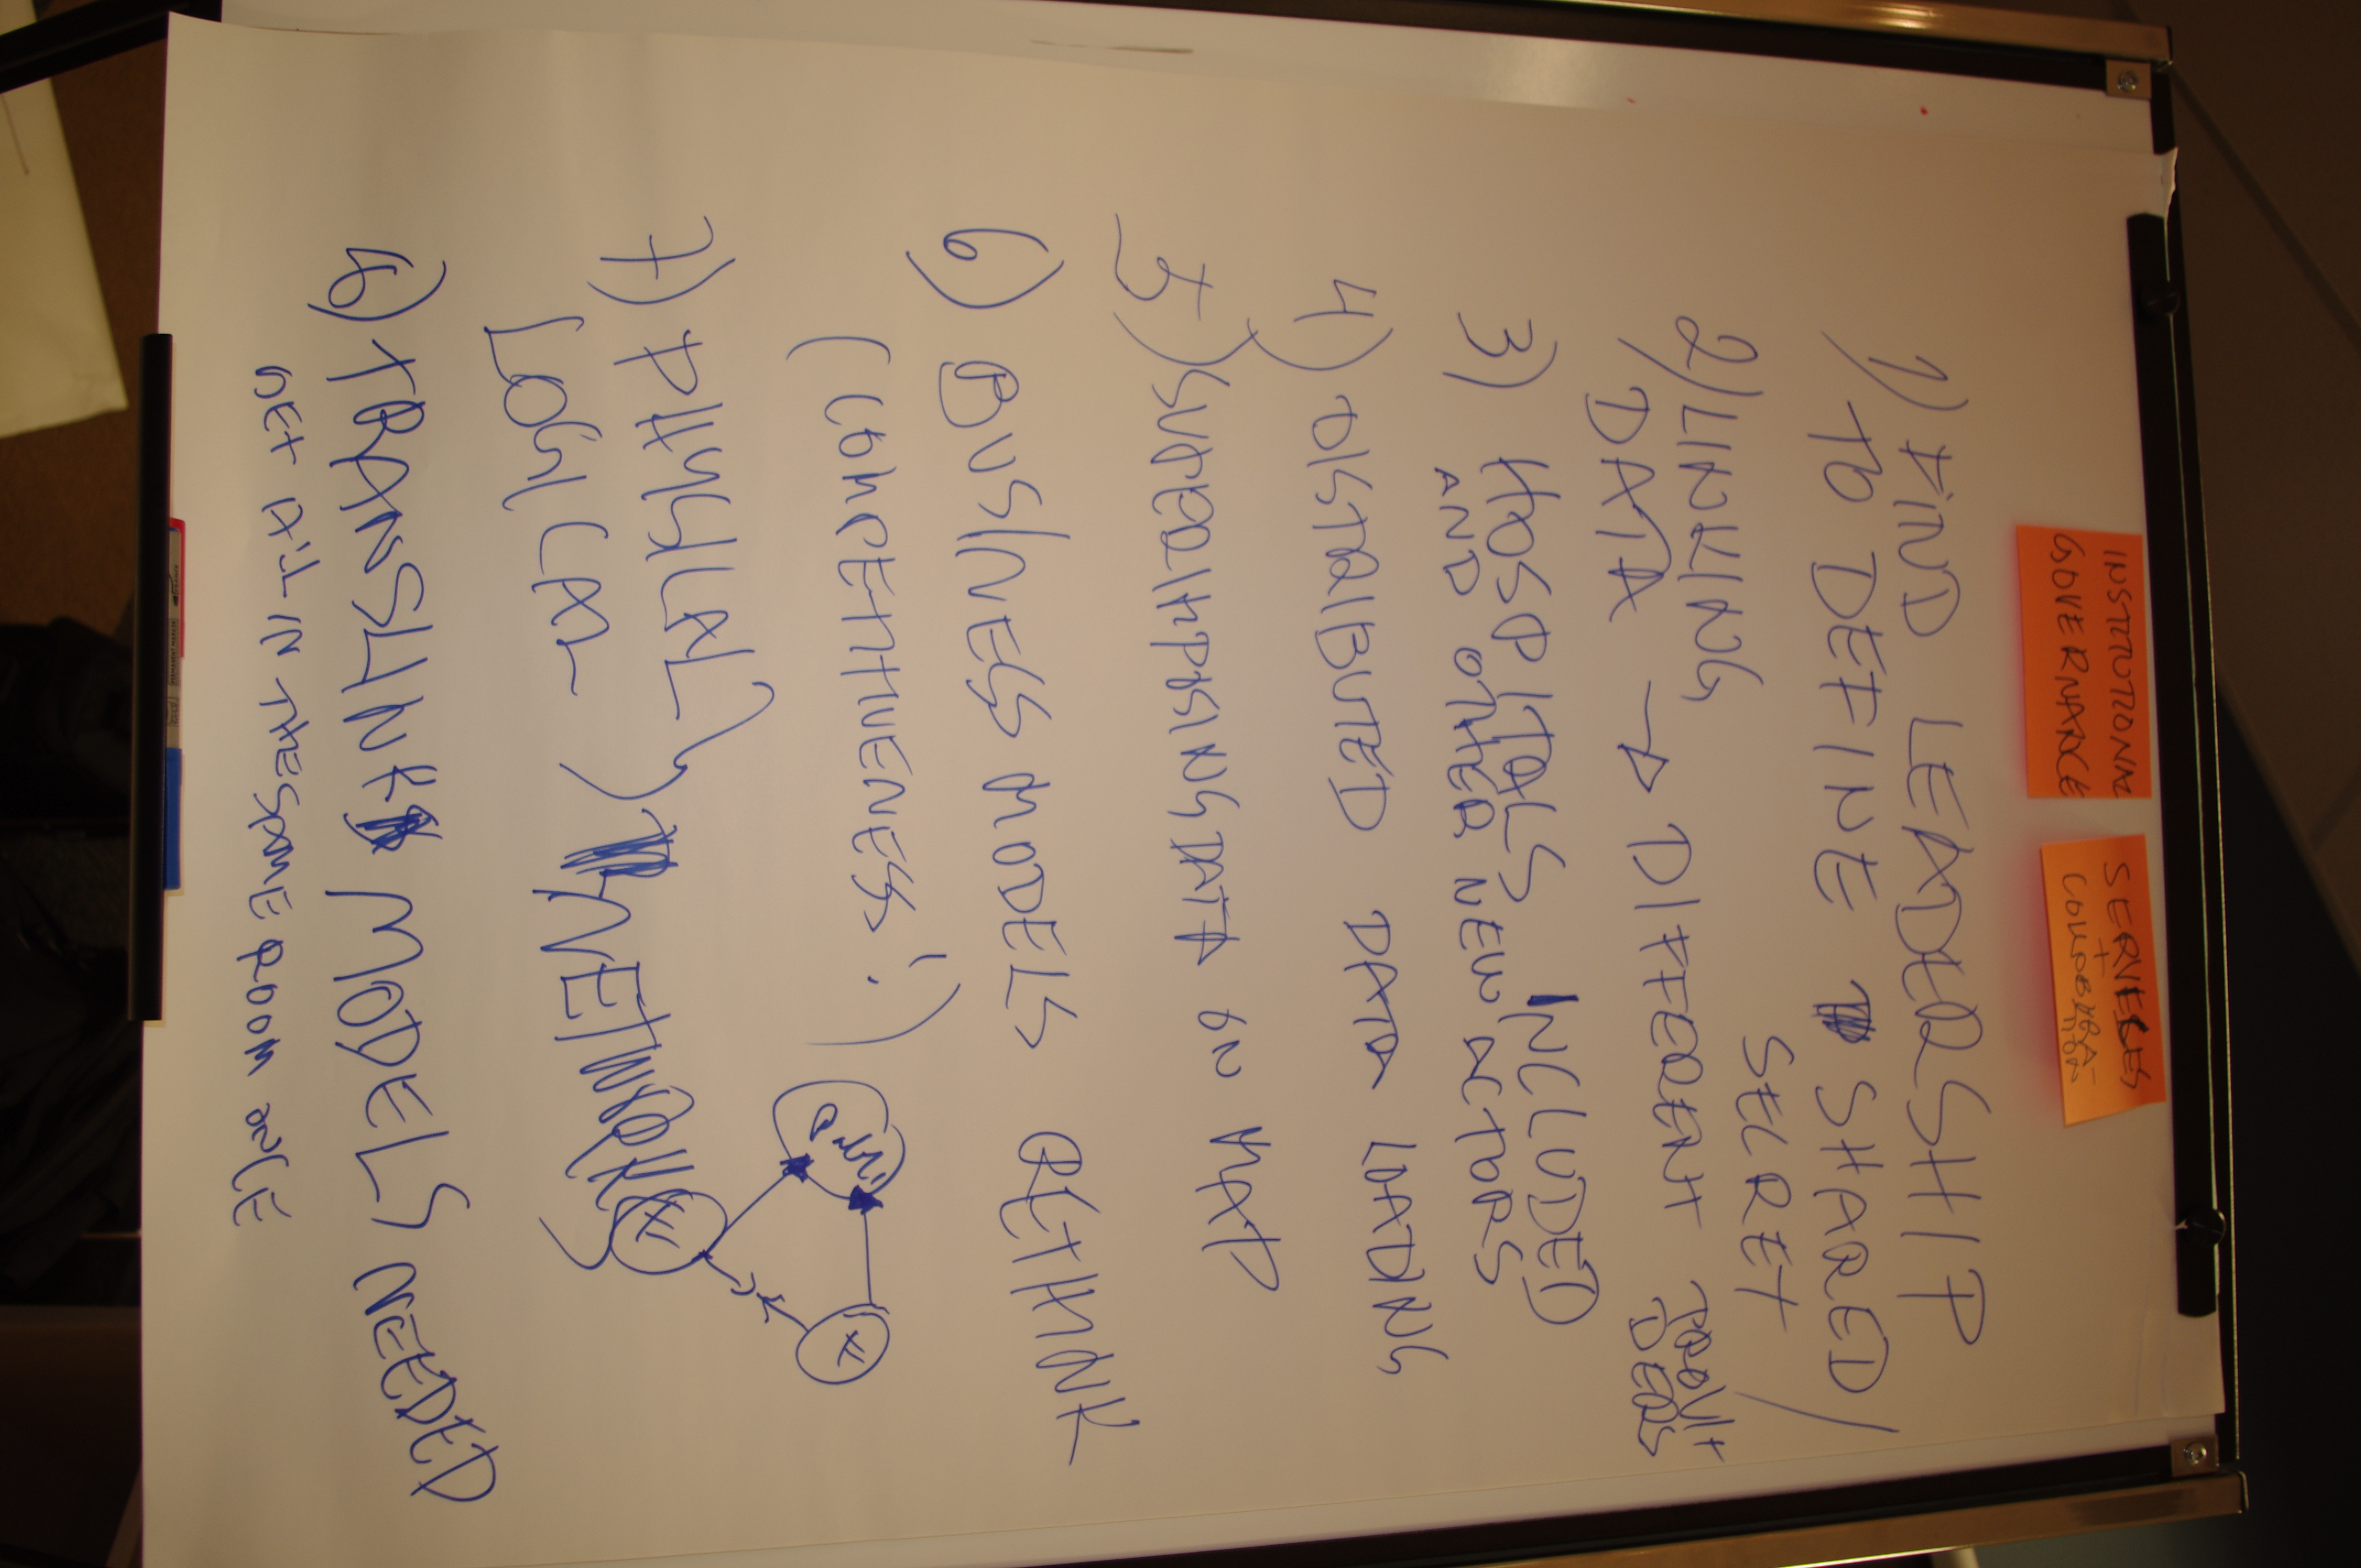 INSTITUTIONAL
GOVERNANCE
SERVICES
+
COLLABORA-
TION
1) FIND LEADERSHIP
TO DEFINE SHARED
SECRET /
2) LINKING
DATA → DIFFERENT
3) HOSPITALS INCLUDED
AND OTHER NEW ACTORS
4) DISTRIBUTED DATA LOADING
5) SUPERIMPOSING DATA ON MAP
6) BUSINESS MODELS RETHINK
(COMPETITIVENESS!)
7) PHYSICAL
LOGICAL
NETWORK
8) TRANSLINK MODELS NEEDED
GET ALL IN THE SAME ROOM ONCE